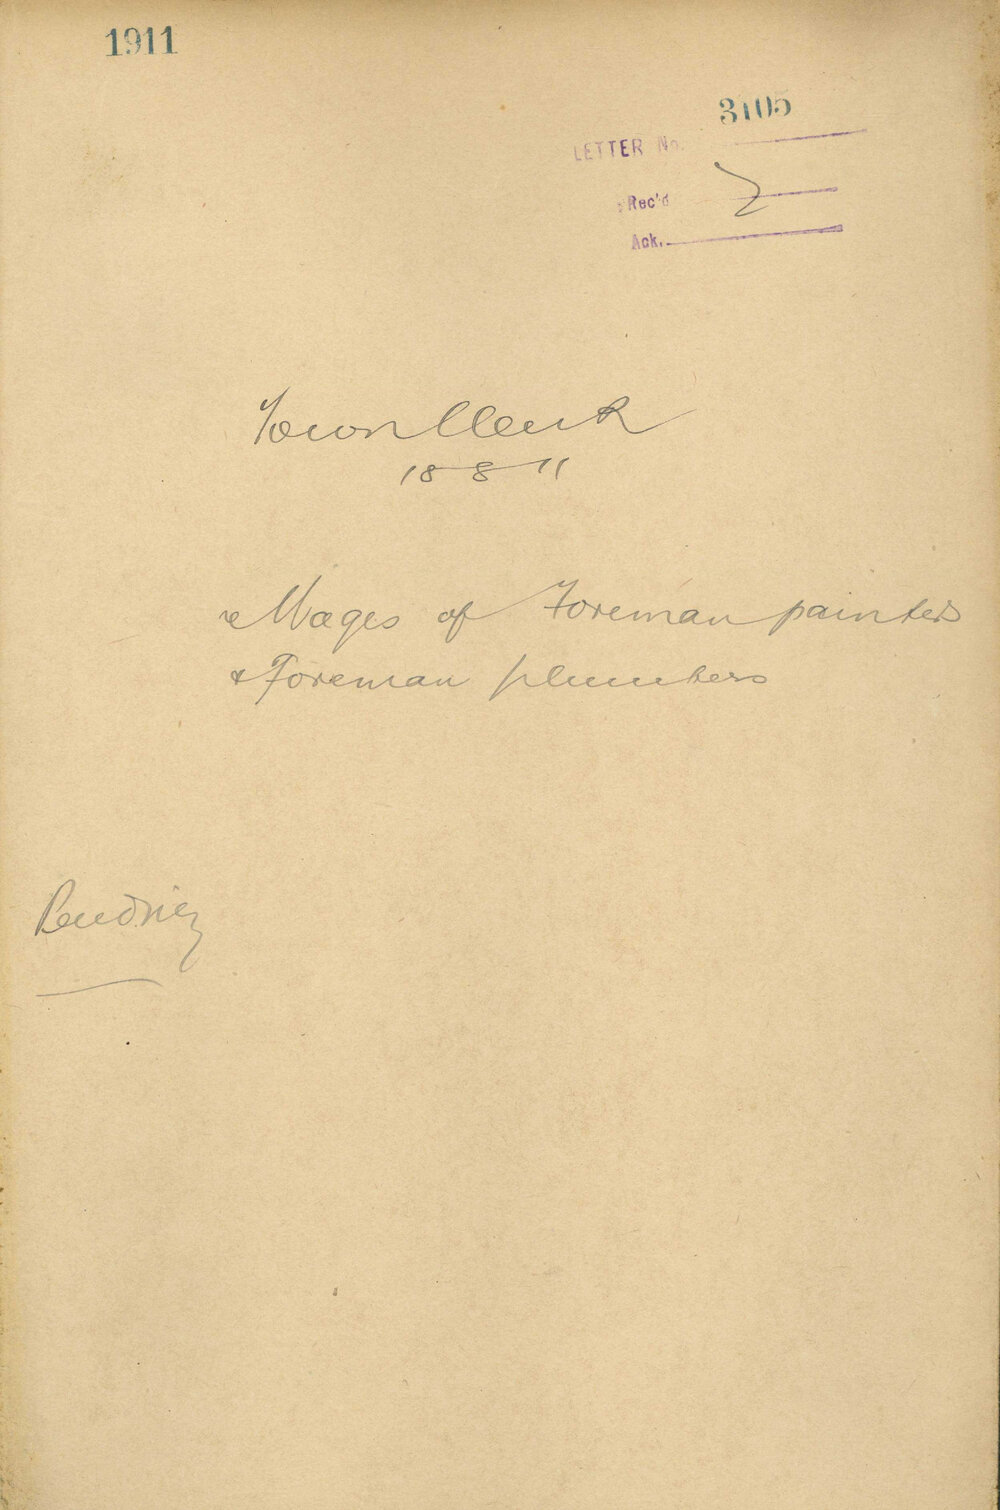 1911
3105
LETTER No.
Rec'd
Ack.
Town Clerk
18 8 11
re Wages of Foreman painters
& Foreman plumbers